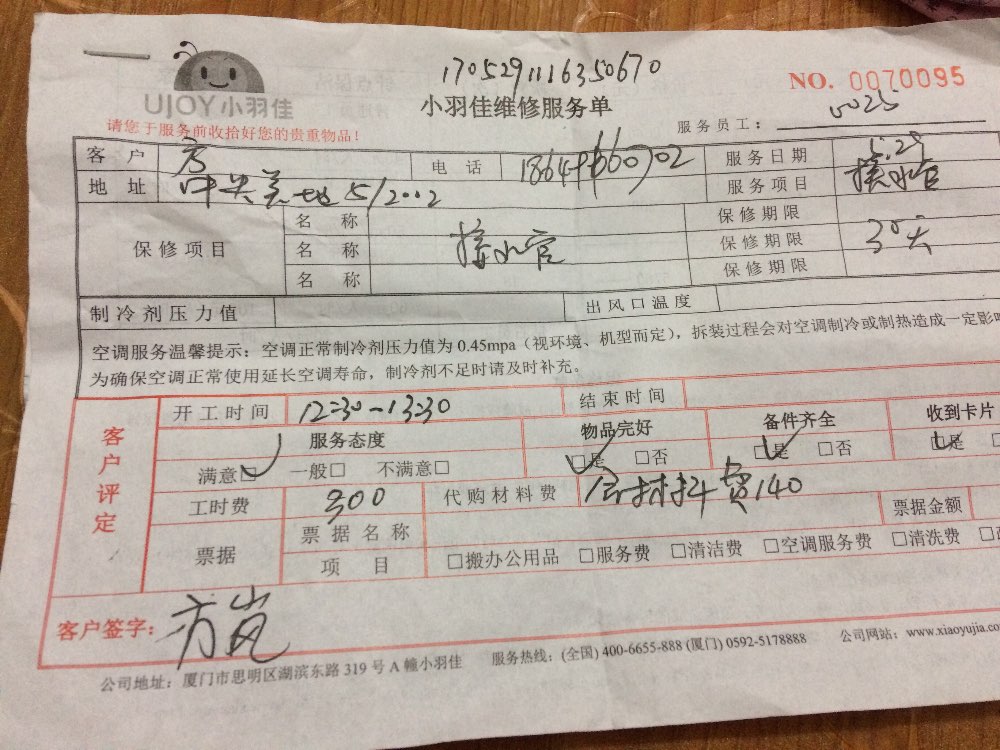 170529111635067​0
UJOY小羽佳
小羽佳维修服务单
NO. 0070095
请您于服务前收拾好您的贵重物品!
服务员工: 0025
客 户 方 电 话 服务日期 5.29
地 址 中央美地5/2002 服务项目 接水管
保修项目 名 称 接水管 保修期限 30天
名 称 保修期限
名 称 保修期限
制冷剂压力值 出风口温度
空调服务温馨提示:空调正常制冷剂压力值为 0.45mpa(视环境、机型而定),拆装过程会对空调制冷或制热造成一定影响
为确保空调正常使用延长空调寿命,制冷剂不足时请及时补充。
客户评定
开工时间 12:30-13:30 结束时间
服务态度 物品完好 备件齐全 收到卡片
满意□ 一般□ 不满意□ □是 □否 □是 □否 □是
工时费 300 代购材料费 含材料费140
票据 票据名称 票据金额
项 目 □搬办公用品 □服务费 □清洁费 □空调服务费 □清洗费
客户签字: 方岚
公司地址:厦门市思明区湖滨东路 319 号 A 幢小羽佳 服务热线:(全国) 400-6655-888 (厦门) 0592-5178888 公司网站:www.xiaoyujia.com